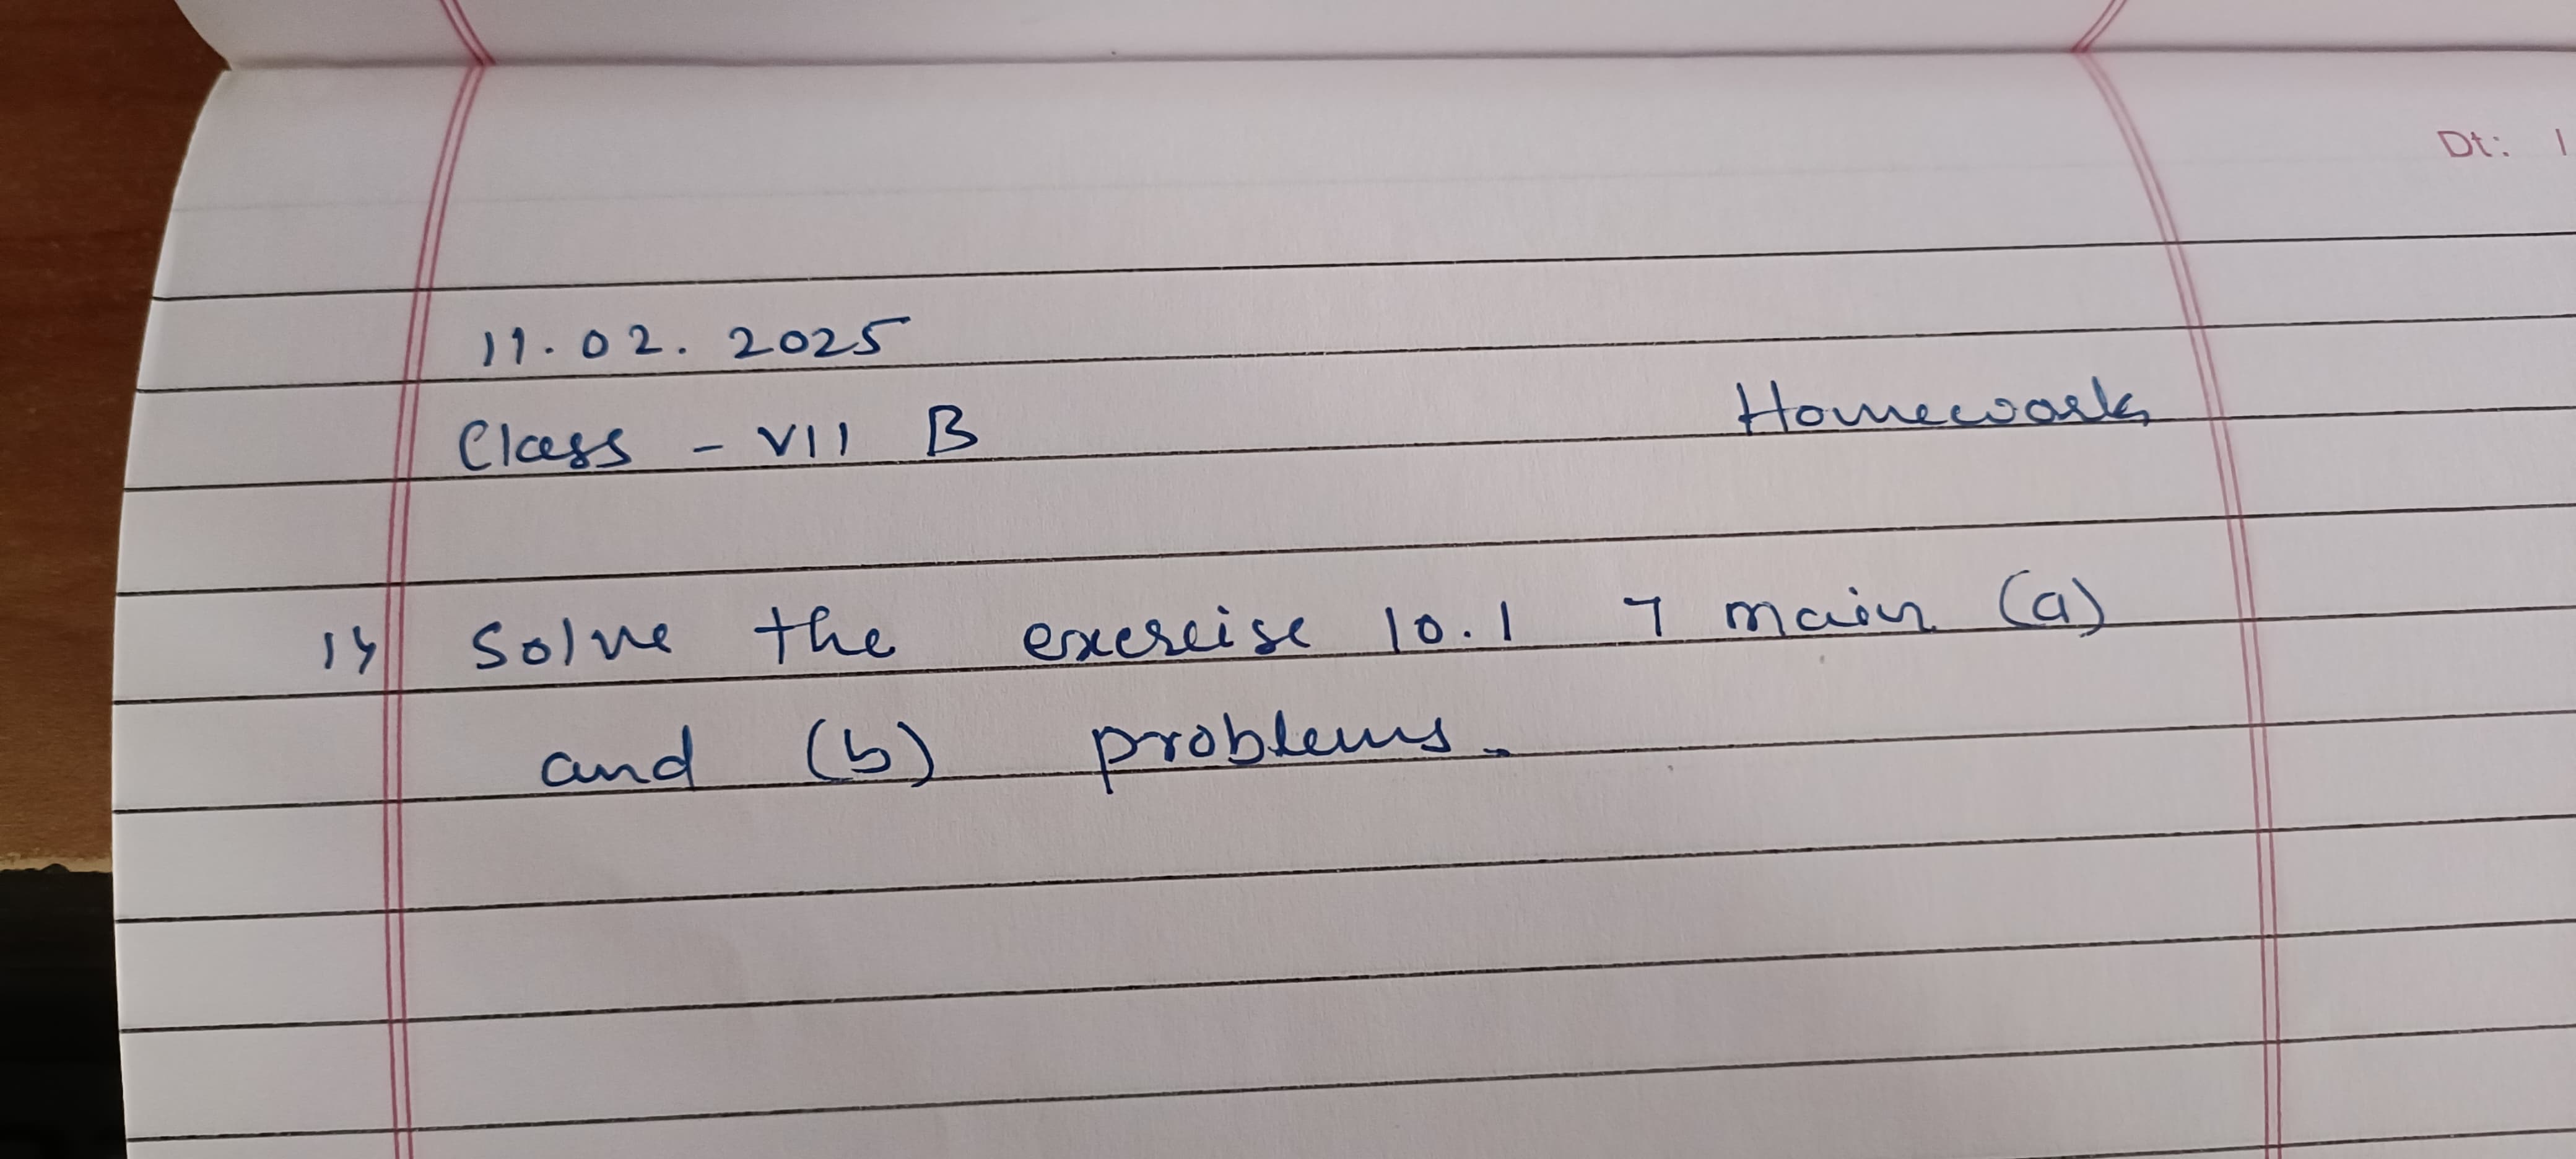 Dt:
11.02.2025
Class - VII B
Homework
1) Solve the exercise 10.1 7 main (a)
and (b) problems.